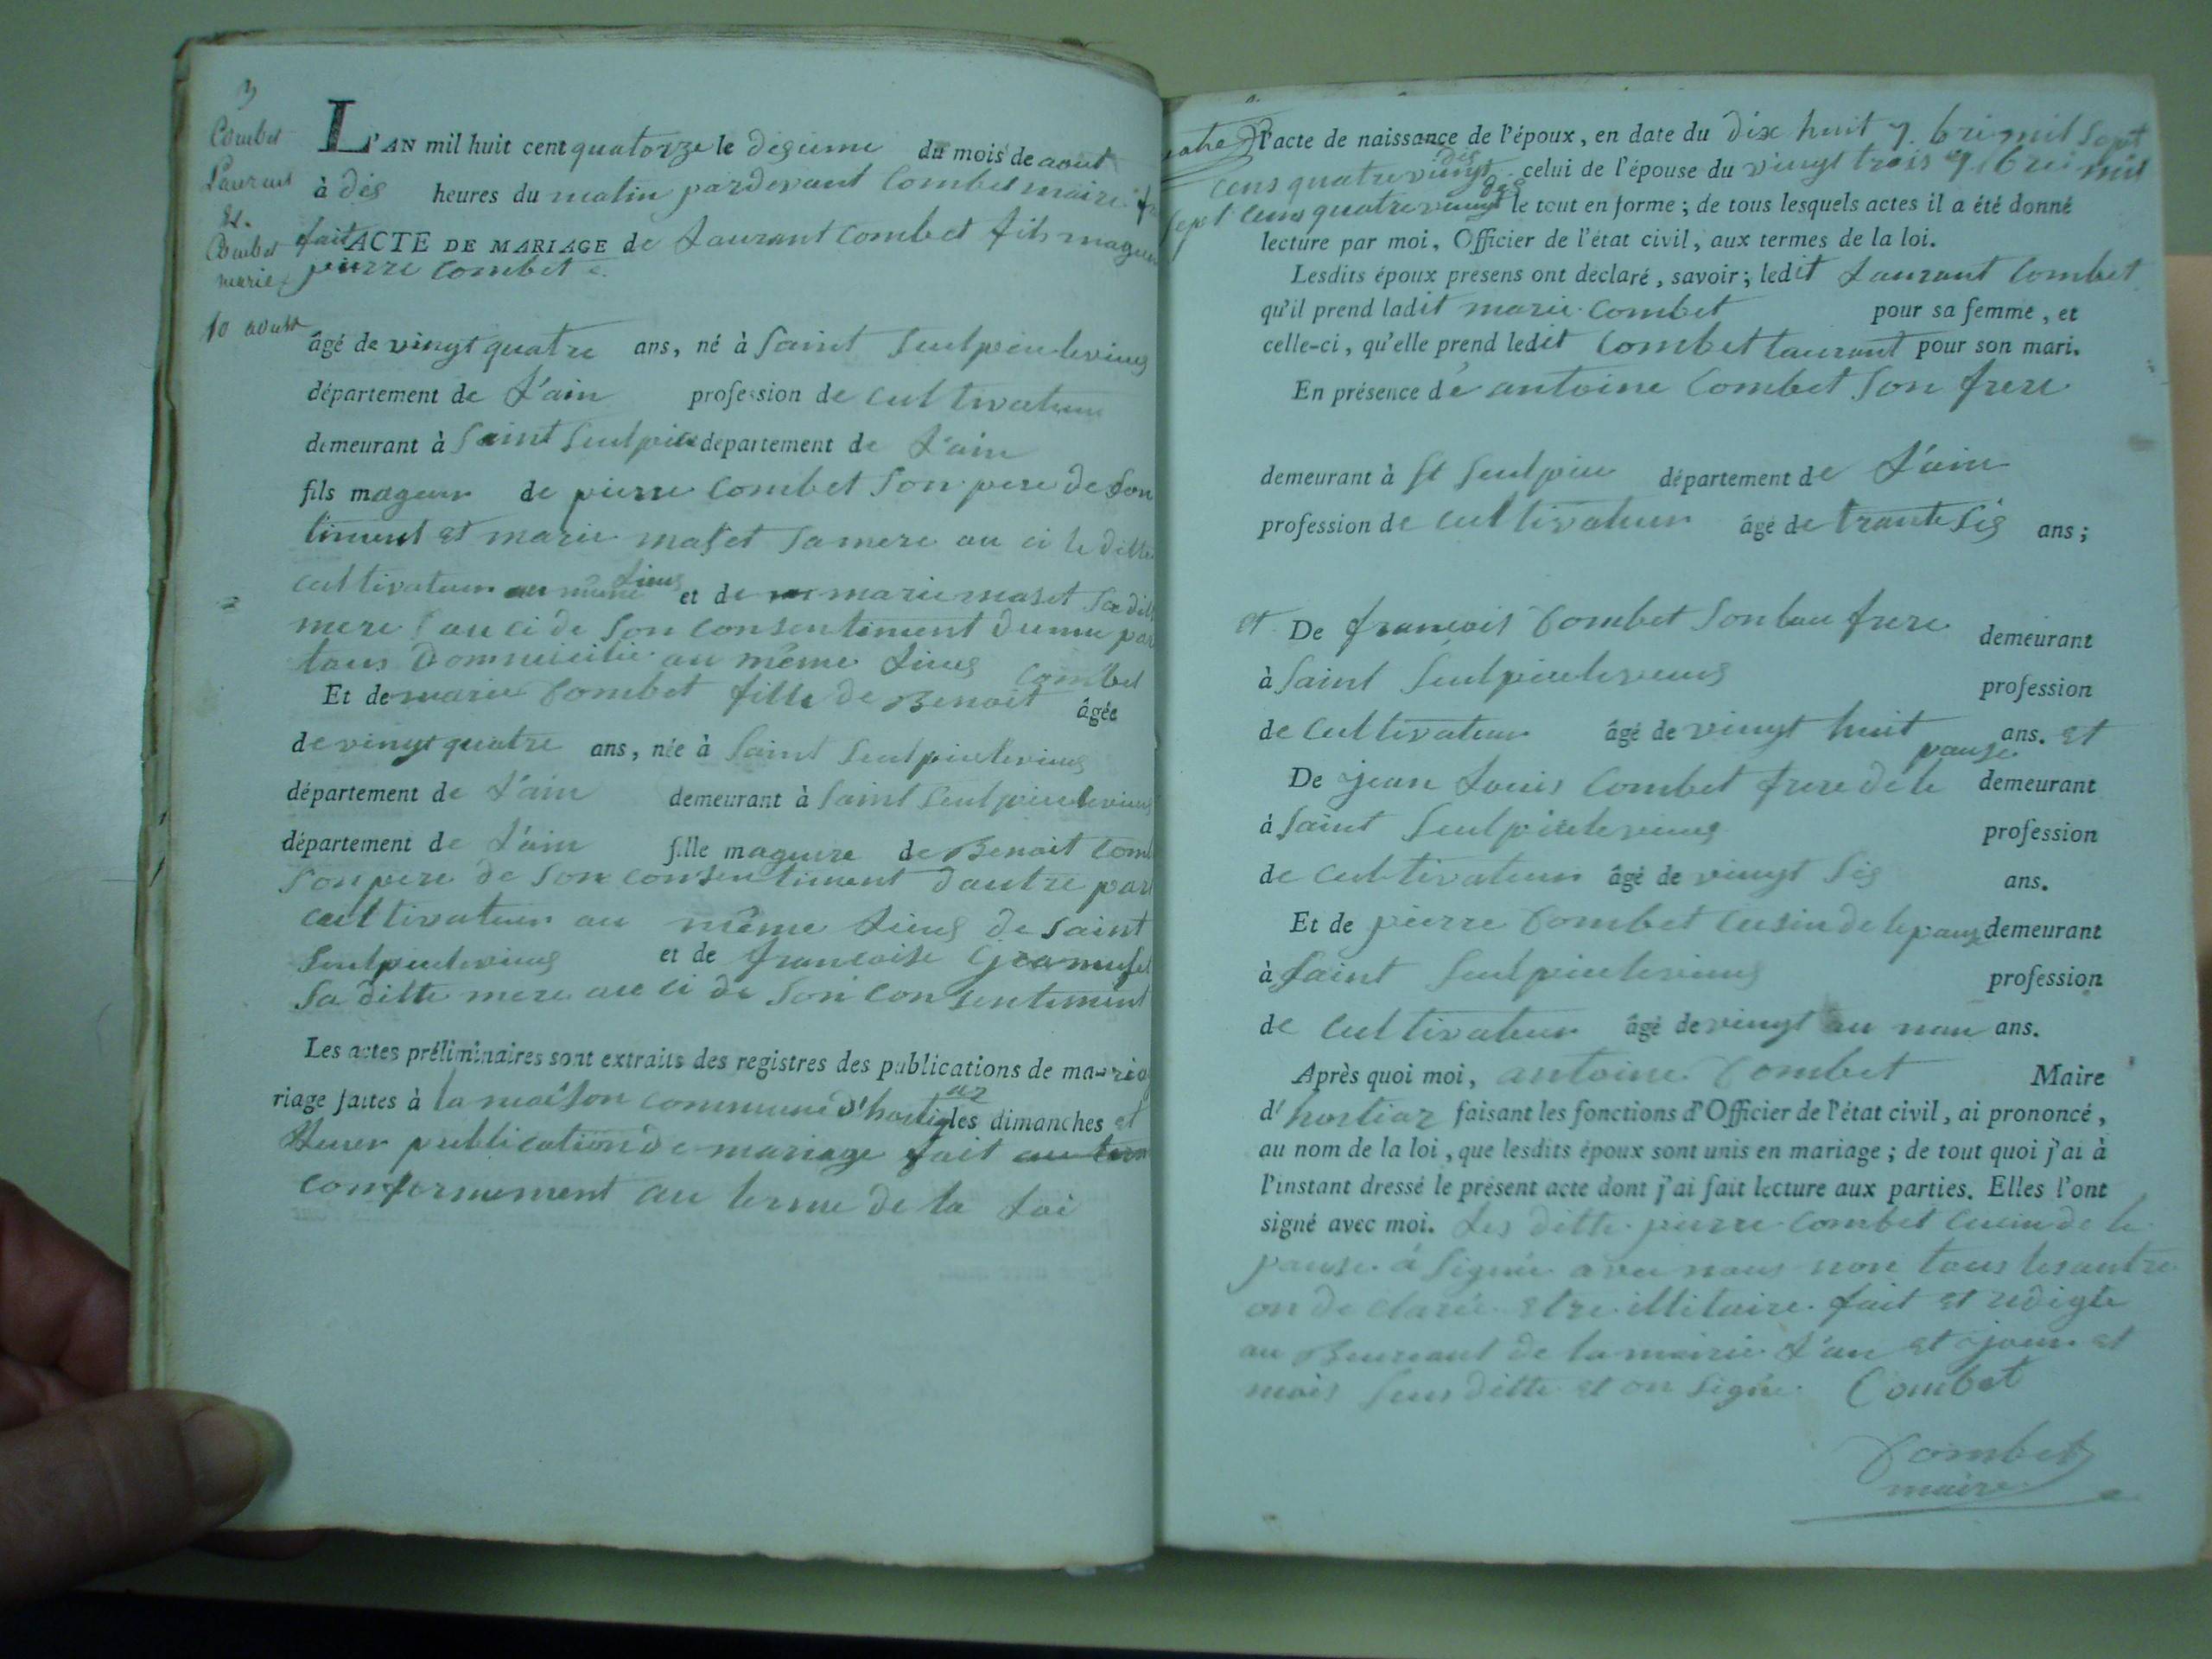 3
Combet
Laurant
et
Combet
marie
10 aoust
L'AN mil huit cent quatorze le dégieme du mois de aout
à dés heures du matin pardevant Combet maire
fait ACTE DE MARIAGE de Laurant Combet fils mageur
pierre Combet
âgé de vingt quatre ans, né à Saint Seulpicelevieus
département de L'ain profession de cultivateur
demeurant à Saint Seulpice département de L'ain
fils mageur de pierre Combet Son pere de Son
timent et marie maset Sa mere au ci le ditte
cultivateur au même Lieus et de marie maset Sa ditte
mere au ci de Son consentiment dunne par
tous Domucilie au même Lieus
Et de marie Combet fille de Benoit Combet âgée
de vingt quatre ans, née à Saint Seulpicelevieus
département de L'ain demeurant à Saint Seulpicelevieus
département de L'ain fille mageure de Benoit Comb
Son pere de Son consentiment dautre part
cultivateur au même Lieus de Saint
Seulpicelevieus et de francoise
Sa ditte mere au ci de Son consentiment
Les actes préliminaires sont extraits des registres des publications de ma-
riage faites à la maison commune d'hostiaz les dimanches et
publication de mariage fait
conformement au terme de la Loi
l'acte de naissance de l'époux, en date du dix huit 9. bre mil Sept
cens quatre vingt dis celui de l'épouse du vingt trois 9. bre mil
Sept cens quatre vingt des le tout en forme ; de tous lesquels actes il a été donné
lecture par moi, Officier de l'état civil, aux termes de la loi.
Lesdits époux présens ont déclaré, savoir ; ledit Laurant Combet
qu'il prend ladit marie Combet pour sa femme, et
celle-ci, qu'elle prend ledit Combet Laurant pour son mari.
En présence de antoine Combet Son frere
demeurant à St Seulpice département de L'ain
profession de cultivateur âgé de trante Sis ans ;
et De francois Combet Son bau frere demeurant
à Saint Seulpicelevieus profession
de Cultivateur âgé de vingt huit ans. et
De jean Louis Combet frere de le pause demeurant
à Saint Seulpicelevieus profession
de Cultivateur âgé de vingt Sis ans.
Et de pierre Combet cusin de le pause demeurant
à Saint Seulpicelevieus profession
de cultivateur âgé de vingt au nan ans.
Après quoi moi, antoine Combet Maire
d'hostiaz faisant les fonctions d'Officier de l'état civil, ai prononcé,
au nom de la loi, que lesdits époux sont unis en mariage ; de tout quoi j'ai à
l'instant dressé le présent acte dont j'ai fait lecture aux parties. Elles l'ont
signé avec moi. Les ditte pierre Combet cusin de le
pause à Signée avec nous non tous les autre
on declarée etre illitaire. fait et redigte
au Beureaut de la mairie L'an et jour et
mois Seus ditte et on Signe. Combet
Combet
maire